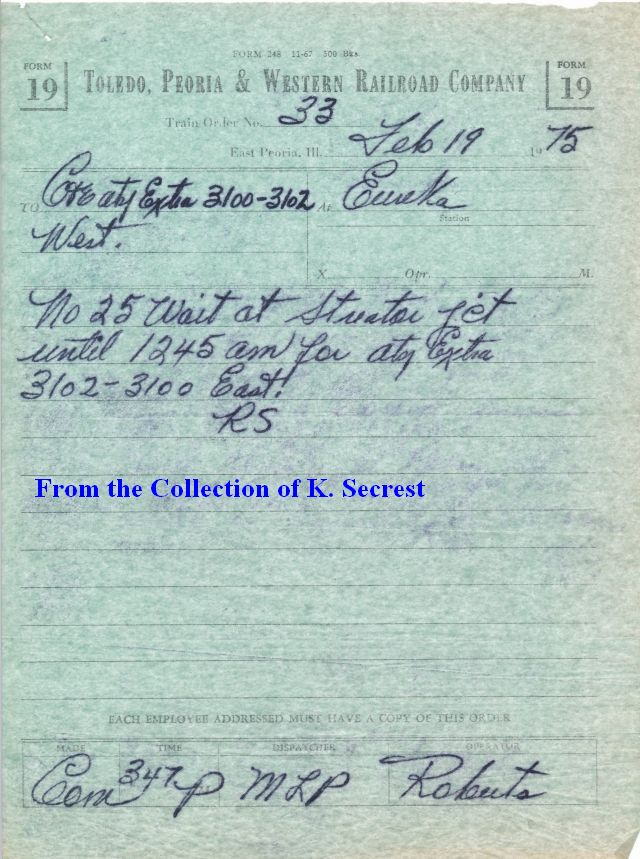 FORM 248 11-67 500 Bks
FORM 19 TOLEDO, PEORIA & WESTERN RAILROAD COMPANY FORM 19
Train Order No. 33
East Peoria, Ill. Feb 19 1975
TO C&E aty Extra 3100-3102 At Eureka
Station
West.
X Opr. M.
No 25 Wait at Streator jct
until 1245 am for aty Extra
3102-3100 East.
RS
From the Collection of K. Secrest
EACH EMPLOYEE ADDRESSED MUST HAVE A COPY OF THIS ORDER
MADE TIME DISPATCHER OPERATOR
Com 347 P MLP Roberts